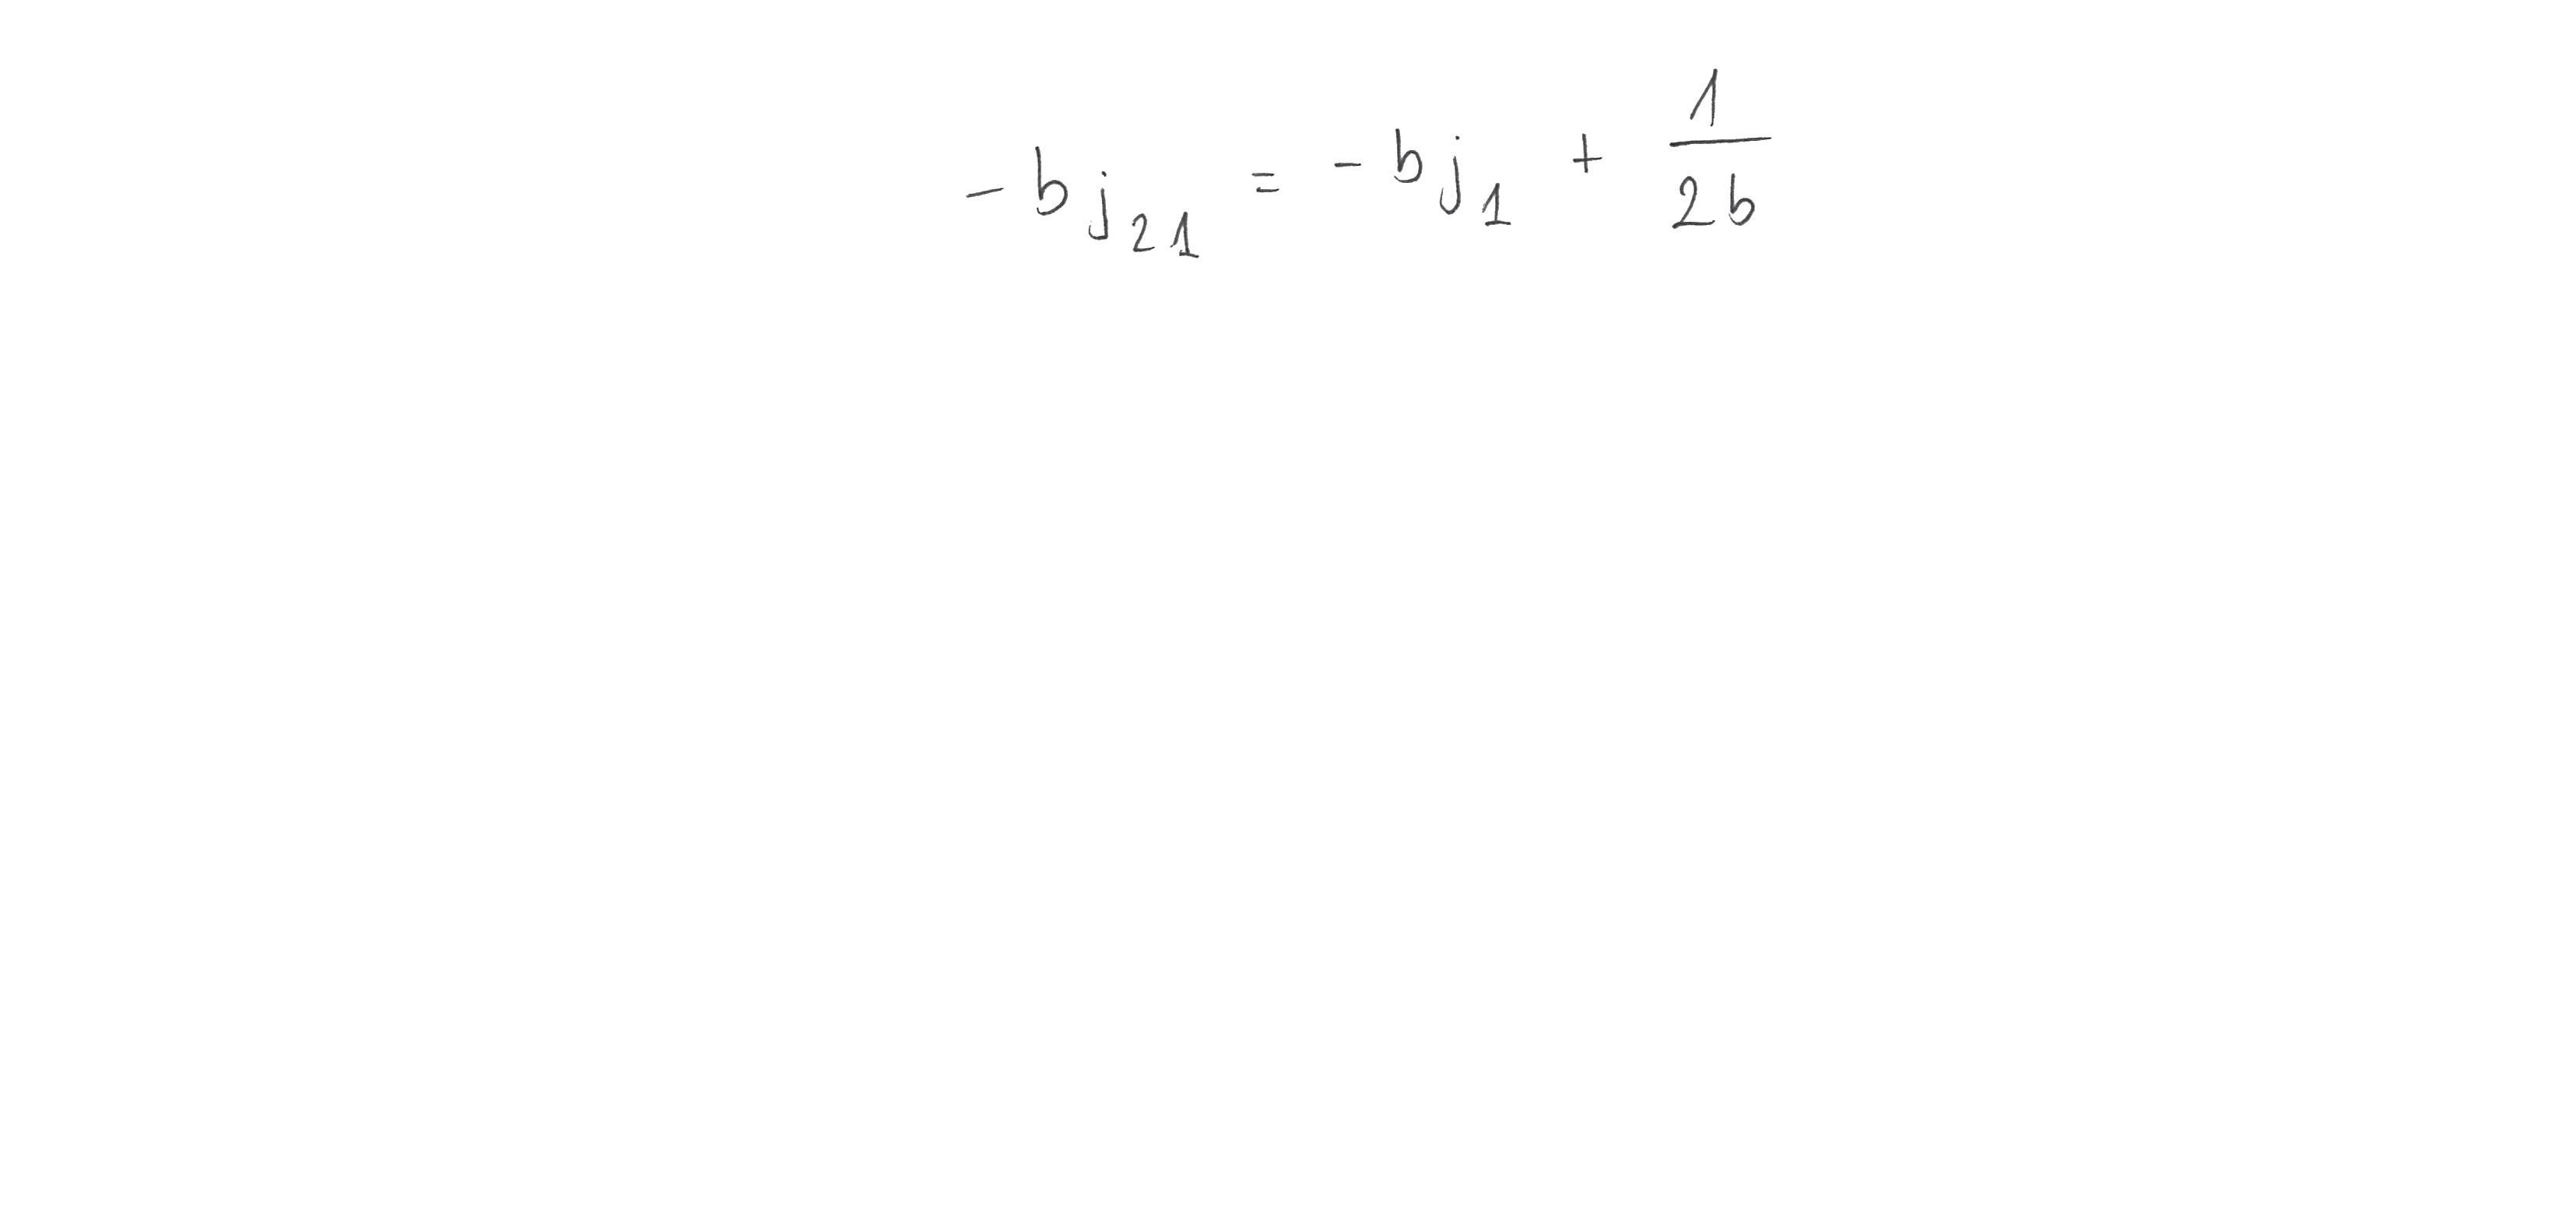 $-b j_{21} = -b j_1 + \frac{1}{2b}$